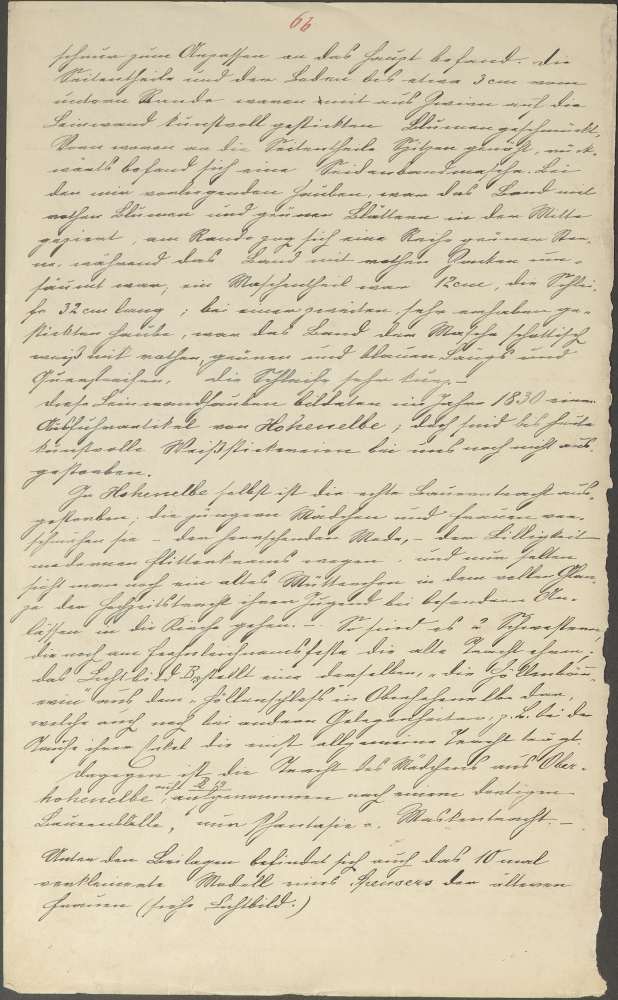 66
schnur zum Anpassen an das Haupt befand. Die
Seitentheile und der Boden bis etwa 3 cm vom
unteren Rande waren mit aus Zwirn auf die
Leinwand kunstvoll gestickten Blumen geschmückt.
Vorn waren an die Seitentheile Spitzen genäht, rück-
wärts befand sich eine Seidenbandmasche. Bei
den mir vorliegenden Hauben, war das Band mit
rothen Blumen und grünen Blättern in der Mitte
geziert, am Rande zog sich eine Reihe grüner
während das Band mit rothen Zacken um-
säumt war; ein Maschentheil war 12 cm, die Schlei-
fe 32 cm lang; bei einer zweiten sehr erhaben ge-
stickten Haube, war das Band der Masche schottisch
weiß mit rothen, grünen und blauen Längs und
Querstreifen, die Schleife sehr kurz.-
Diese Leinwandhauben bildeten im Jahre 1830 einen
Ausfuhrartikel von Hohenelbe; doch sind bis heute
kunstvolle Weißstickereien bei uns noch nicht aus-
gestorben.
In Hohenelbe selbst ist die echte Bauerntracht aus-
gestorben; die jüngeren Mädchen und Frauen ver-
schmähen sie - der herrschenden Mode, - der Billigkeit
modernen Flitterkrams wegen, und nur selten
sieht man noch ein altes Mütterchen in dem vollen Glan-
ze der Hochzeitstracht ihrer Jugend bei besonderen An-
lässen in die Kirche gehen. - So sind es 2 Schwestern,
die noch am Frohnleichnamsfeste die alte Tracht ehren;
das Lichtbild B, stellt eine derselben, "die
aus dem in Oberhohenelbe dar,
welche auch noch bei anderen Gelegenheiten, z.B. bei der
Taufe ihrer Enkel die einst allgemeine Tracht trägt.
Dagegen ist die Tracht des Mädchens aus Ober-
hohenelbe auf aufgenommen nach einem dortigen
Bauernballe, nur Phantasie u. Maskentracht. -
Unter den Beilagen befindet sich auch das 10 mal
verkleinerte Modell eines Spensers der älteren
Frauen (siehe Lichtbild.)